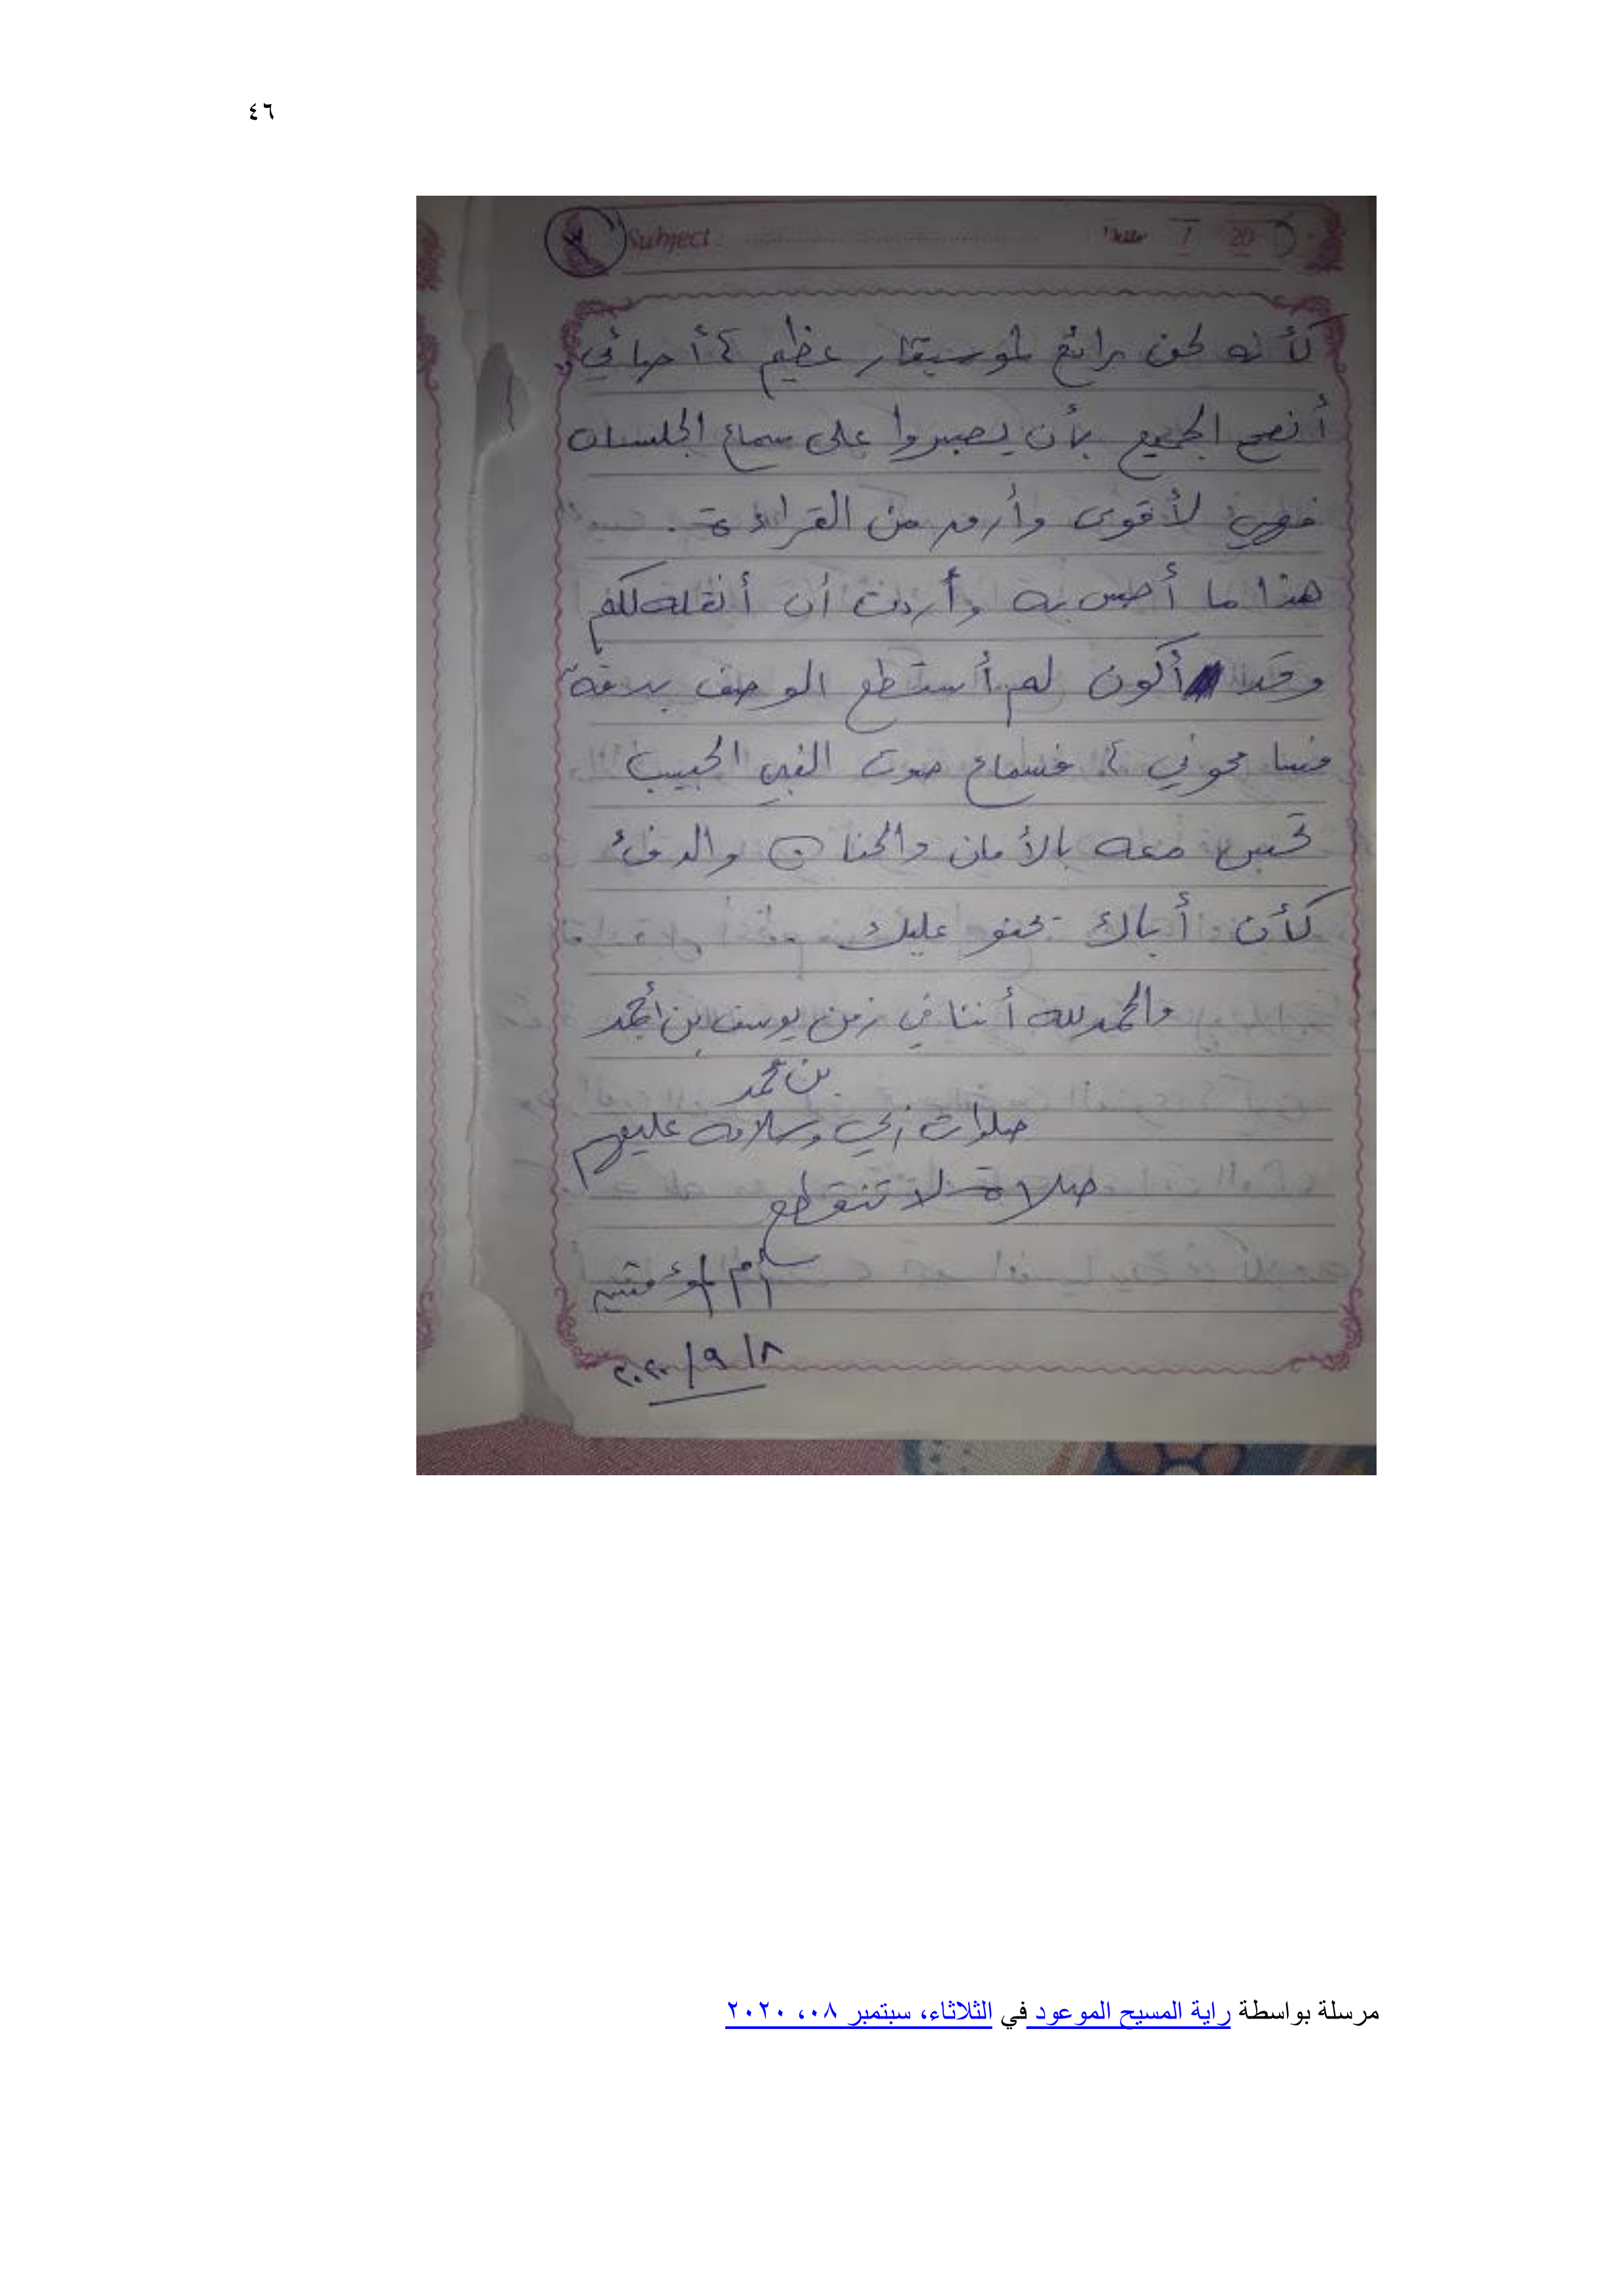 ٤٦
Subject: Date / 20
كأنه لحن رائع لموسيقار عظيم، أحبائي
أنصح الجميع بأن يصبروا على سماع الجلسات
فهي لأقوى وأروع من القراءة.
هذا ما أحس به وأردت أن أنقله لكم
وقد أكون لم أستطع الوصف بدقة
فسامحوني، فسماع صوت النبي الحبيب
تحس معه بالأمان والحنان والدفئ
كأن أباك يحنو عليك
والحمد لله أننا في زمن يوسف بن أحمد
بن محمد
صلوات ربي وسلامه عليهم
صلاة لا تنقطع
أم المؤمنين
٢٠٢٠/٩/٨
مرسلة بواسطة راية المسيح الموعود في الثلاثاء، سبتمبر ٠٨، ٢٠٢٠